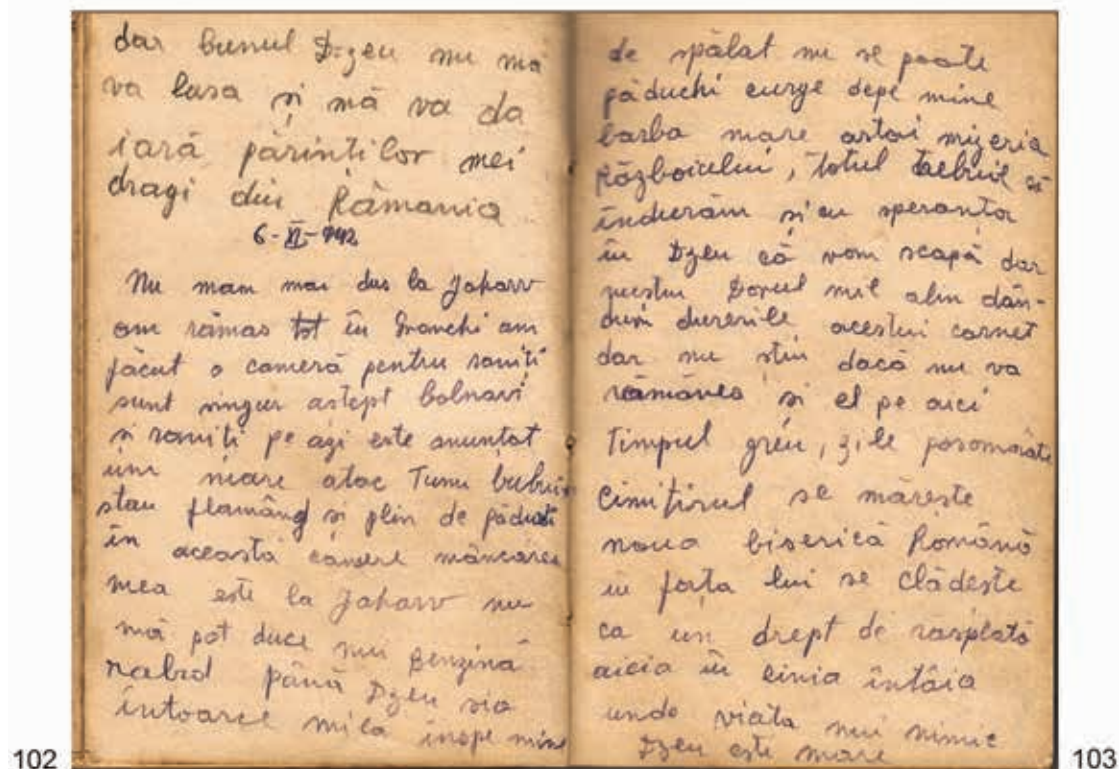 dar bunul Dzeu nu mă
va lasa și mă va da
iară părintilor mei
dragi din România
6-XI-942
Nu mam mai dus la Joharw
am rămas tot în Branchi am
făcut o cameră pentru raniți
sunt singur astept bolnavi
si raniți pe azi este anunțat
un mare atac Tunu bubuie
stau flamând si plin de păduchi
în această camere mâncarea
mea este la Joharw nu
mă pot duce nui Benzină
rabd până Dzeu sia
intoarce mila inspe mine
de spălat nu se poate
păduchi curge depe mine
barba mare astai mizeria
Războiului, totul trebuie să
îndurăm și cu speranta
în Dzeu că vom scapă dar
Dorul mil alin dân-
durerile acestui carnet
dar nu stiu dacă nu va
rămânea si el pe aici
Timpul greu, zile posomorâte
Cimitirul se mărește
noua biserică Română
in fata lui se clădeste
ca un drept de rasplată
aicia in linia intâia
unde viata nui nimic
Dzeu este mare
102
103